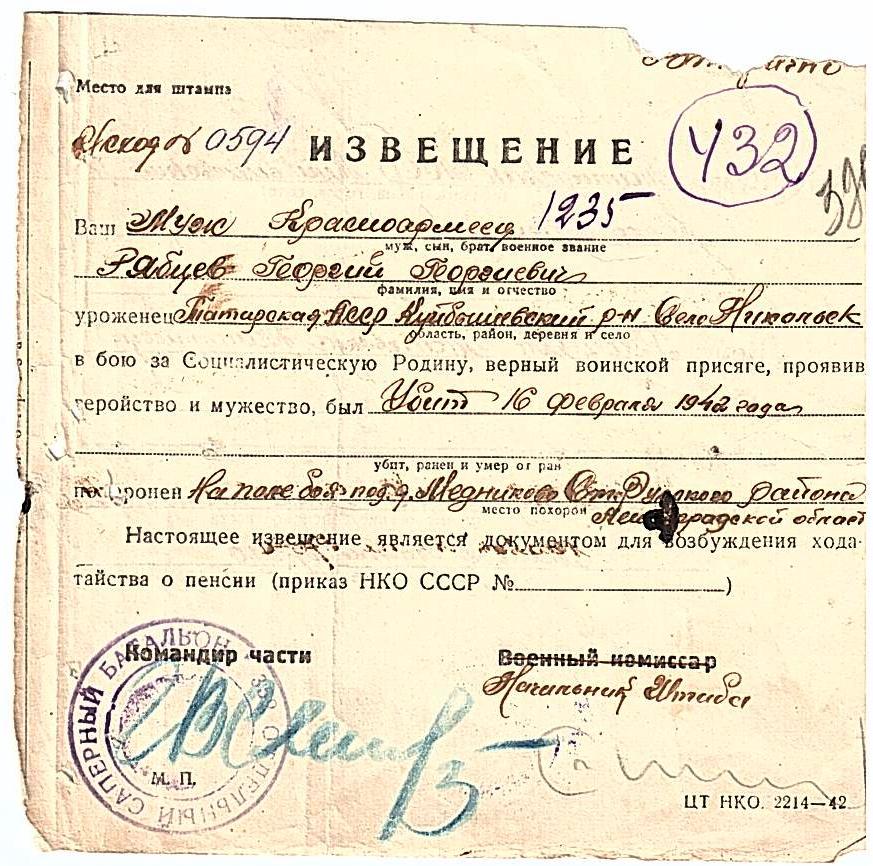 Место для штампа
Исход № 0594 ИЗВЕЩЕНИЕ 432
Ваш Муж Красноармеец 1235
муж, сын, брат, военное звание
Рябцев Георгий Георгиевич
фамилия, имя и отчество
уроженец Татарская АССР Куйбышевский р-н Село Никольск
область, район, деревня и село
в бою за Социалистическую Родину, верный воинской присяге, проявив
геройство и мужество, был Убит 16 февраля 1942 года
убит, ранен и умер от ран
похоронен На поле боя под д. Медниково района
место похорон Ленинградской област
Настоящее извещение является документом для возбуждения хода-
тайства о пенсии (приказ НКО СССР № )
Командир части Военный комиссар
Начальник Штаба
ОТДЕЛЬНЫЙ САПЕРНЫЙ БАТАЛЬОН
М. П.
ЦТ НКО. 2214—42